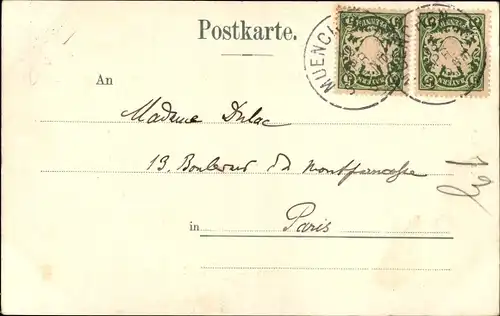 Postkarte.
MUENCH
An
Madame Dulac
13. Boulevard Ed Montparnasse
in Paris